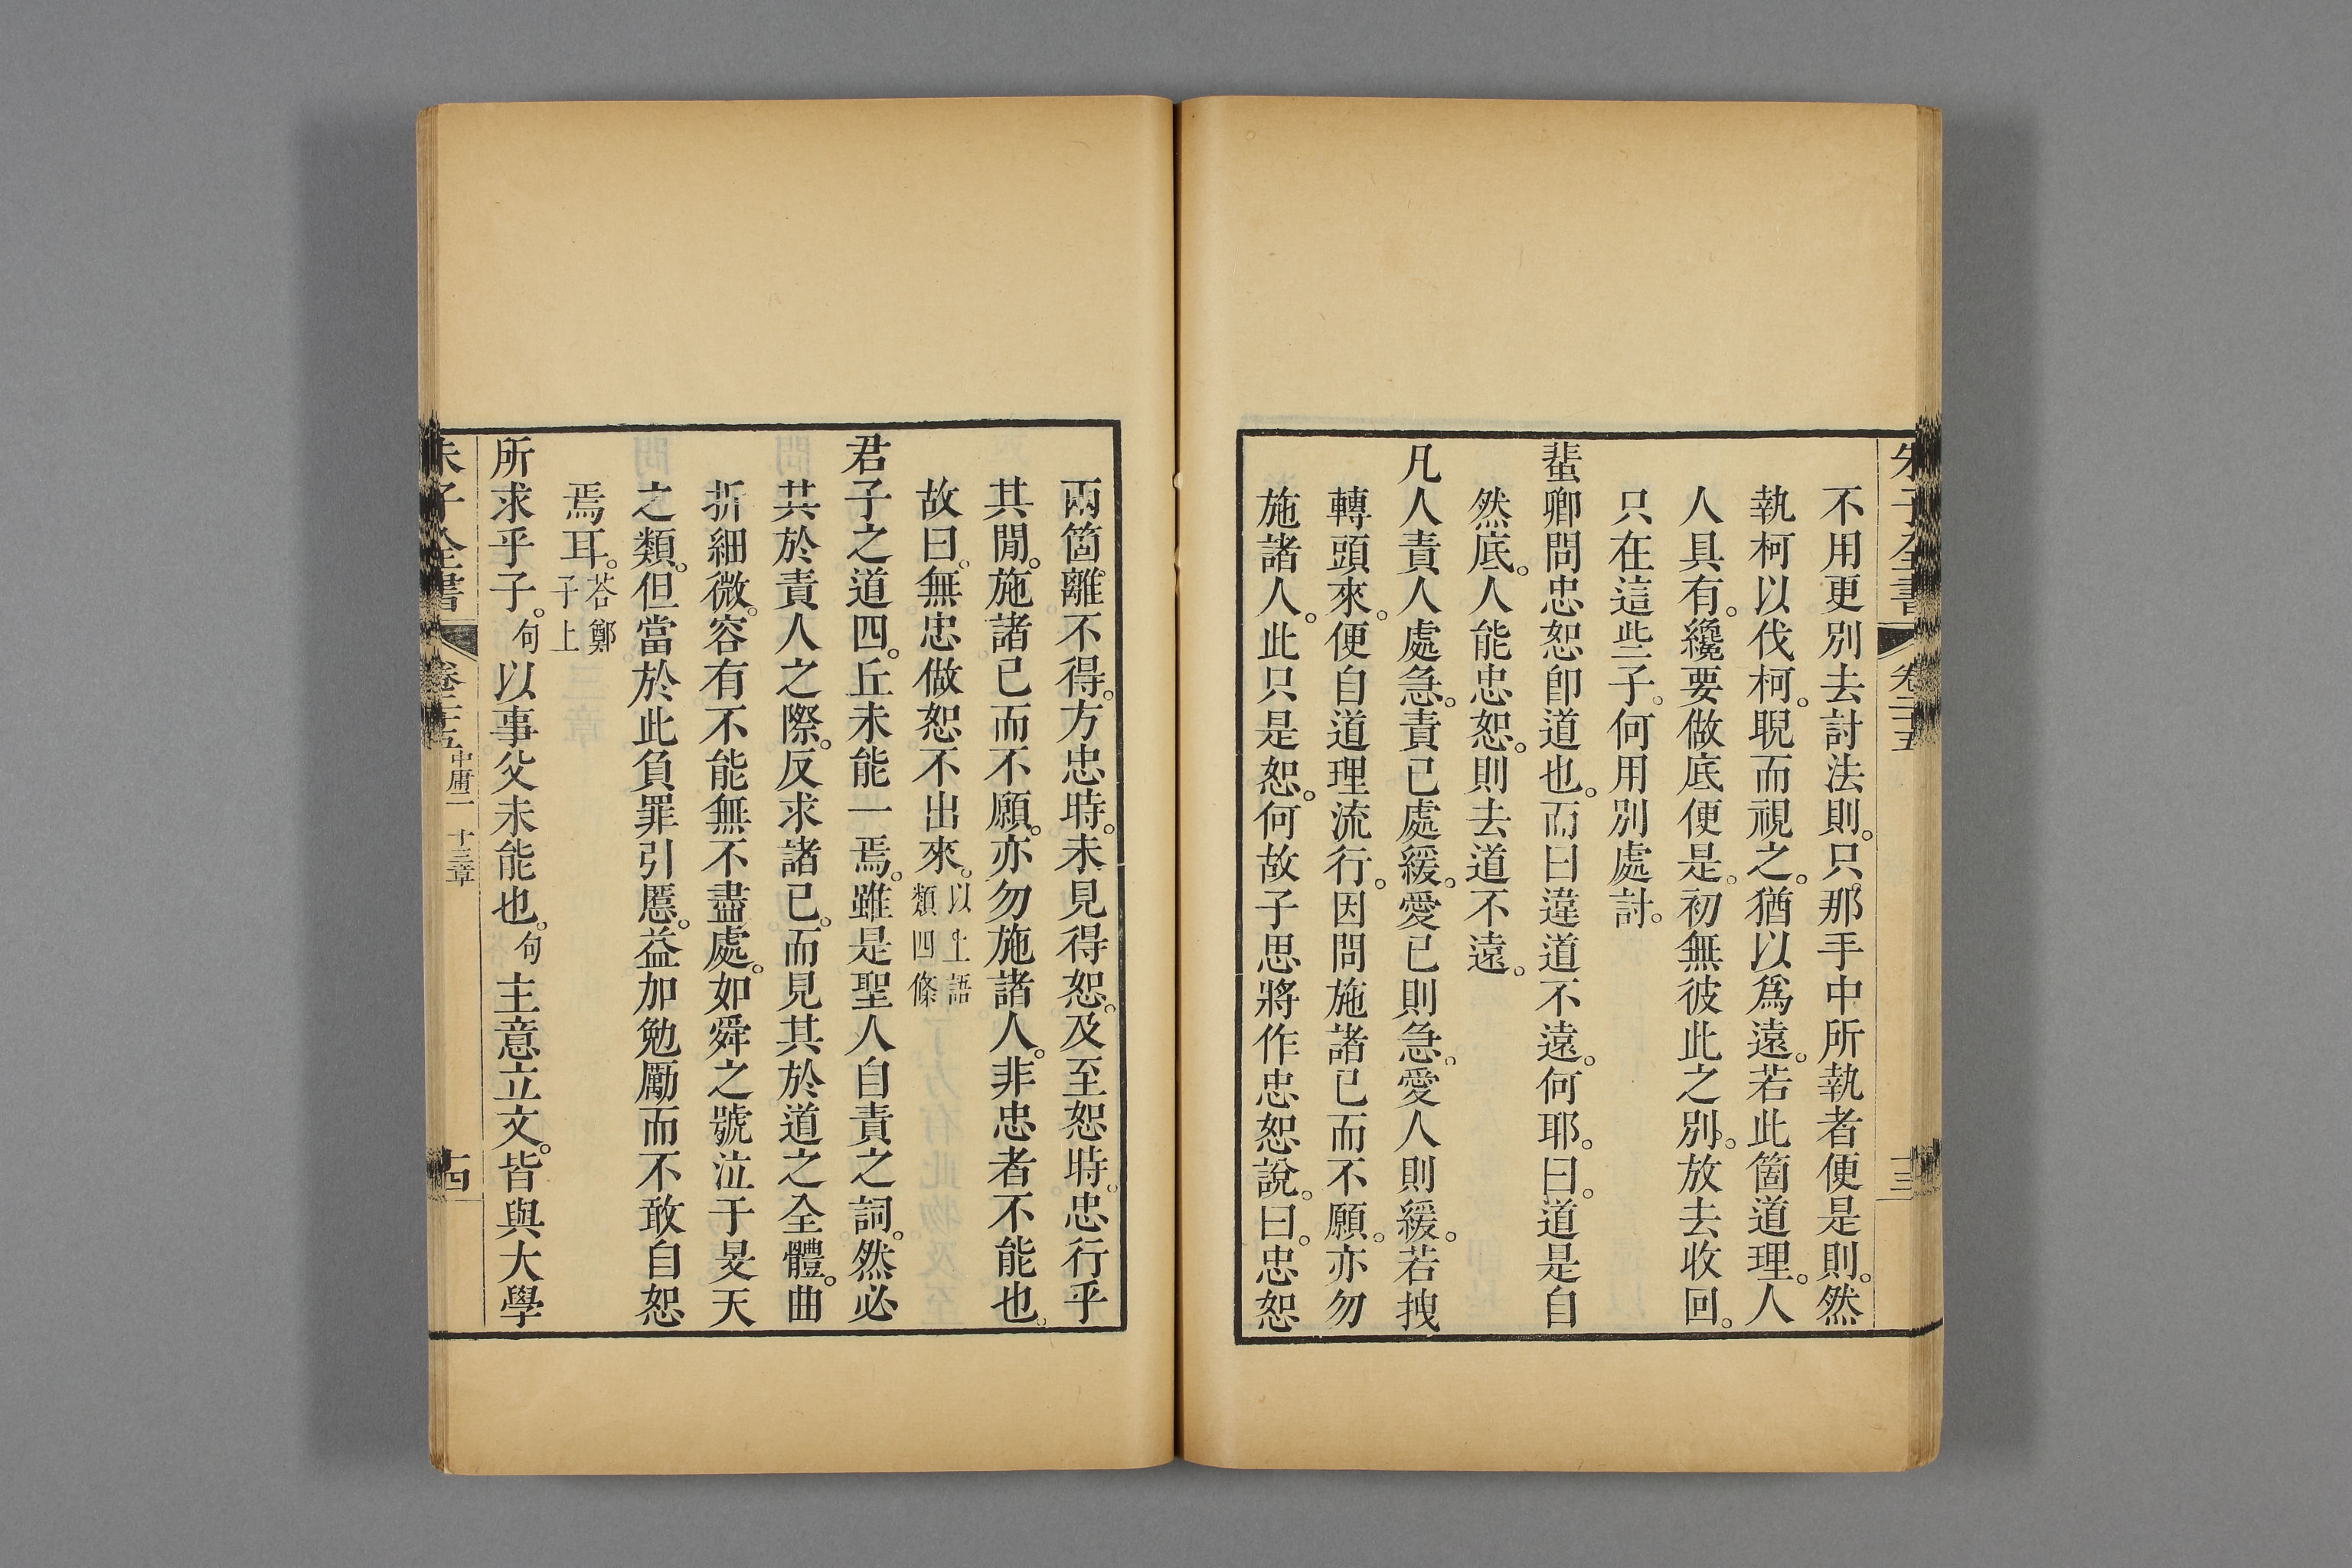 朱子全書 卷二十五 十三
不用更別去討法則。只那手中所執者便是則。然
執柯以伐柯。睨而視之。猶以爲遠。若此箇道理。人
人具有。纔要做底便是。初無彼此之別。放去收回。
只在這些子。何用別處討。
蜚卿問忠恕卽道也。而曰違道不遠。何耶。曰。道是自
然底。人能忠恕。則去道不遠。
凡人責人處急。責已處緩。愛已則急。愛人則緩。若拽
轉頭來。便自道理流行。因問施諸已而不願。亦勿
施諸人。此只是恕。何故子思將作忠恕說。曰。忠恕
兩箇離不得。方忠時。未見得恕。及至恕時。忠行乎
其閒。施諸已而不願。亦勿施諸人。非忠者不能也。
故曰。無忠做恕不出來。以上語類四條
君子之道四。丘未能一焉。雖是聖人自責之詞。然必
其於責人之際。反求諸已。而見其於道之全體。曲
折細微。容有不能無不盡處。如舜之號泣于旻天
之類。但當於此負罪引慝。益加勉勵而不敢自恕
焉耳。荅鄭子上
所求乎子。句以事父未能也。句主意立文。皆與大學
朱子全書 卷二十五 中庸二 十三章 十四